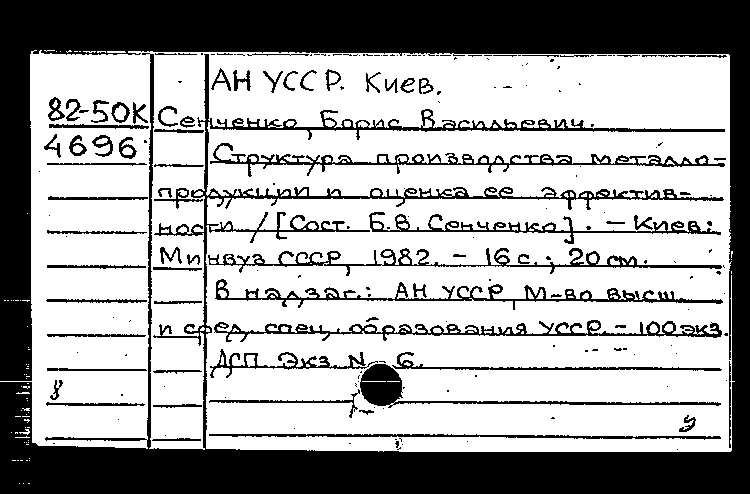 АН УССР. Киев.
82-50К Сенченко, Борис Васильевич.
4696 Структура производства металло-
продукции и оценка ее эффектив-
ности / [Сост. Б.В. Сенченко]. – Киев:
Минвуз СССР, 1982. – 16 с.; 20 см.
В надзаг.: АН УССР, М-во высш.
и сред. спец. образования УССР. – 100 экз.
ДСП. Экз. N 6.
8